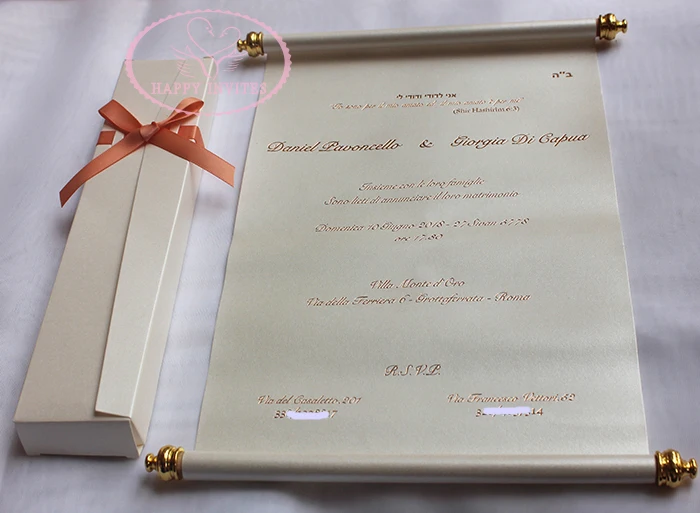 HAPPY INVITES
ב"ה
אני לדודי ודודי לי
"Io sono per il mio amato ed il mio amato è per me"
(Shir Hashirim 6:3)
Daniel Pavoncello & Giorgia Di Capua
Insieme con le loro famiglie
Sono lieti di annunciare il loro matrimonio
Domenica 10 Giugno 2018 - 27 Sivan 5778
ore 17:30
Villa Monte d'Oro
Via della Ferriera 6 - Grottaferrata - Roma
R.S.V.P.
Via del Casaletto, 201
Via Francesco Vettori, 62